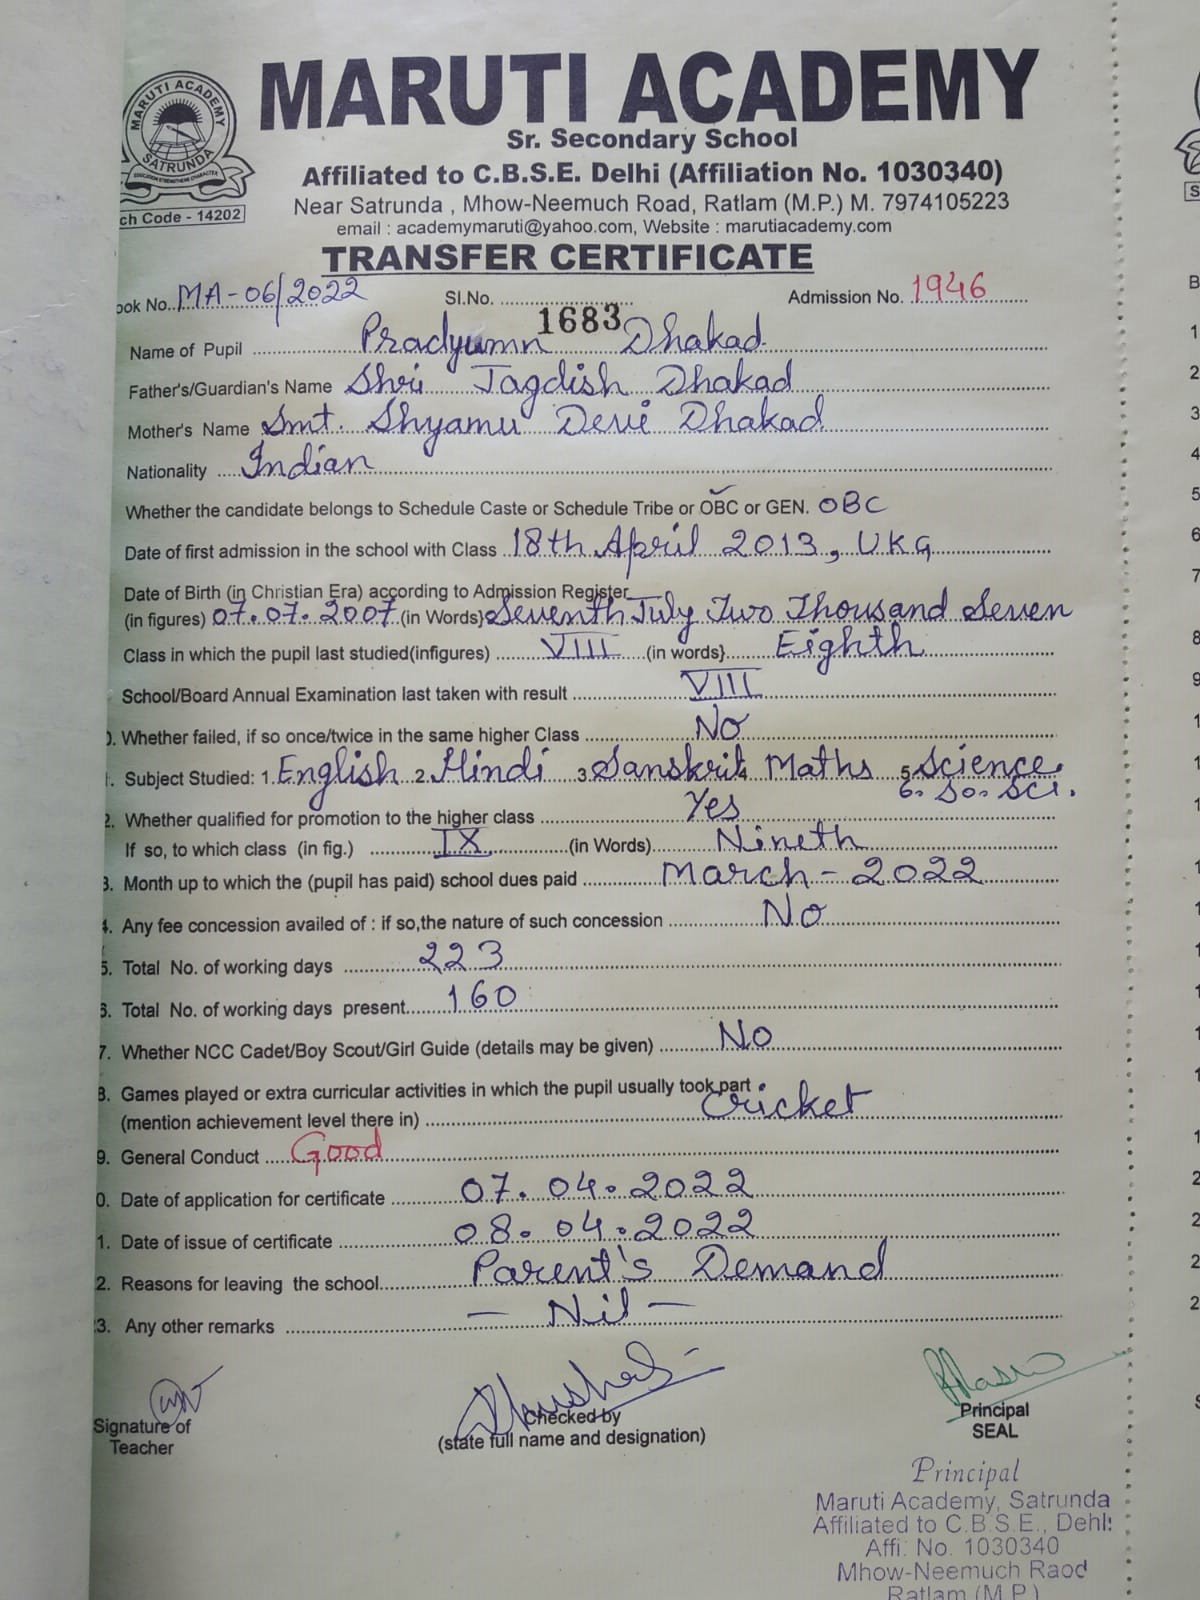 MARUTI ACADEMY
SATRUNDA
MARUTI ACADEMY
Sr. Secondary School
Affiliated to C.B.S.E. Delhi (Affiliation No. 1030340)
ch Code - 14202
Near Satrunda , Mhow-Neemuch Road, Ratlam (M.P.) M. 7974105223
email : academymaruti@yahoo.com, Website : marutiacademy.com
TRANSFER CERTIFICATE
ook No. MA-06/2022 Sl.No. 1683 Admission No. 1946
Name of Pupil Pradyumn Dhakad
Father's/Guardian's Name Shri Jagdish Dhakad
Mother's Name Smt. Shyamu Devi Dhakad
Nationality Indian
Whether the candidate belongs to Schedule Caste or Schedule Tribe or OBC or GEN. OBC
Date of first admission in the school with Class 18th April 2013, UKG
Date of Birth (in Christian Era) according to Admission Register
(in figures) 07.07.2007 (in Words} Seventh July Two Thousand Seven
Class in which the pupil last studied(infigures) VIII (in words} Eighth
School/Board Annual Examination last taken with result VIII
0. Whether failed, if so once/twice in the same higher Class No
1. Subject Studied: 1. English 2. Hindi 3. Sanskrit 4 Maths 5. Science
6. So. Sci.
2. Whether qualified for promotion to the higher class Yes
If so, to which class (in fig.) IX (in Words) Nineth
3. Month up to which the (pupil has paid) school dues paid March - 2022
4. Any fee concession availed of : if so,the nature of such concession No
5. Total No. of working days 223
6. Total No. of working days present 160
7. Whether NCC Cadet/Boy Scout/Girl Guide (details may be given) No
8. Games played or extra curricular activities in which the pupil usually took part
(mention achievement level there in) Cricket
9. General Conduct Good
0. Date of application for certificate 07.04.2022
1. Date of issue of certificate 08.04.2022
2. Reasons for leaving the school Parent's Demand
3. Any other remarks - Nil -
Signature of
Teacher
Checked by
(state full name and designation)
Principal
SEAL
Principal
Maruti Academy, Satrunda
Affiliated to C.B.S.E., Dehli
Affi. No. 1030340
Mhow-Neemuch Raod
Ratlam (M.P.)